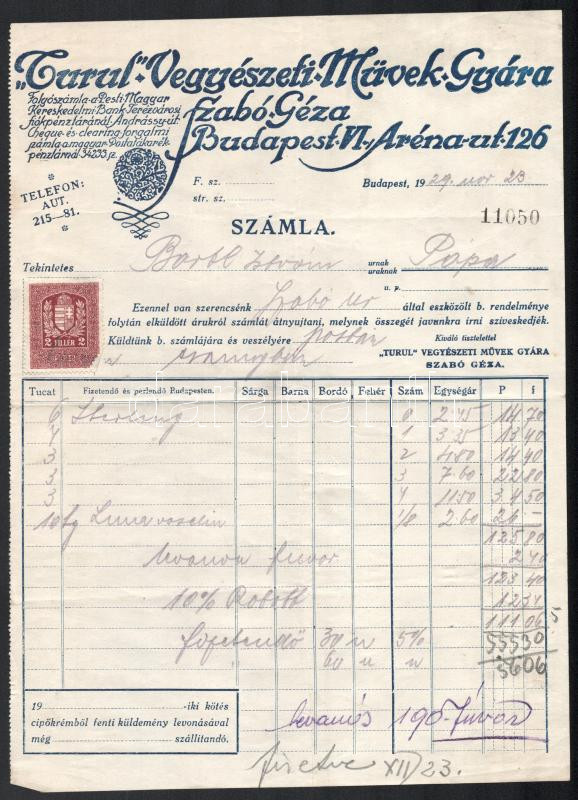 "Turul" Vegyészeti Művek Gyára
Szabó Géza
Budapest VI. Aréna-út 126
Folyószámla a Pesti Magyar
Kereskedelmi Bank Terézvárosi
fiókpénztáránál Andrássy-út
Cheque és clearing forgalmi
számla a magyar Postatakarék-
pénztárnál 34233 sz.
TELEFON:
AUT.
215—81.
F. sz.
str. sz.
Budapest, 1929 nov 23
11050
SZÁMLA.
Tekintetes Bartl István urnak uraknak Pápa
u. p.
Ezennel van szerencsénk Szabó Ur által eszközölt b. rendelménye
folytán elküldött árukról számlát átnyujtani, melynek összegét javunkra irni sziveskedjék.
Küldtünk b. számlájára és veszélyére postán
csomagban
Kiváló tisztelettel
"TURUL" VEGYÉSZETI MŰVEK GYÁRA
SZABÓ GÉZA.
2 FILLÉR 2
Tucat Fizetendő és perlendő Budapesten. Sárga Barna Bordó Fehér Szám Egységár P f
6 Sterling 0 2.45 14 70
4 1 3.35 13 40
3 2 4.80 14 40
3 3 7.60 22 80
3 4 11.50 34 50
10 kg Luna vaselin 1/8 2.60 26 –
125 80
2 40
123 40
10% 12 34
111 06
fizetendő 30 n 5% 55530
60 n " 5606
19 -iki kötés
cipőkrémből fenti küldemény levonásával
még szállítandó.
fizetve XII/23.